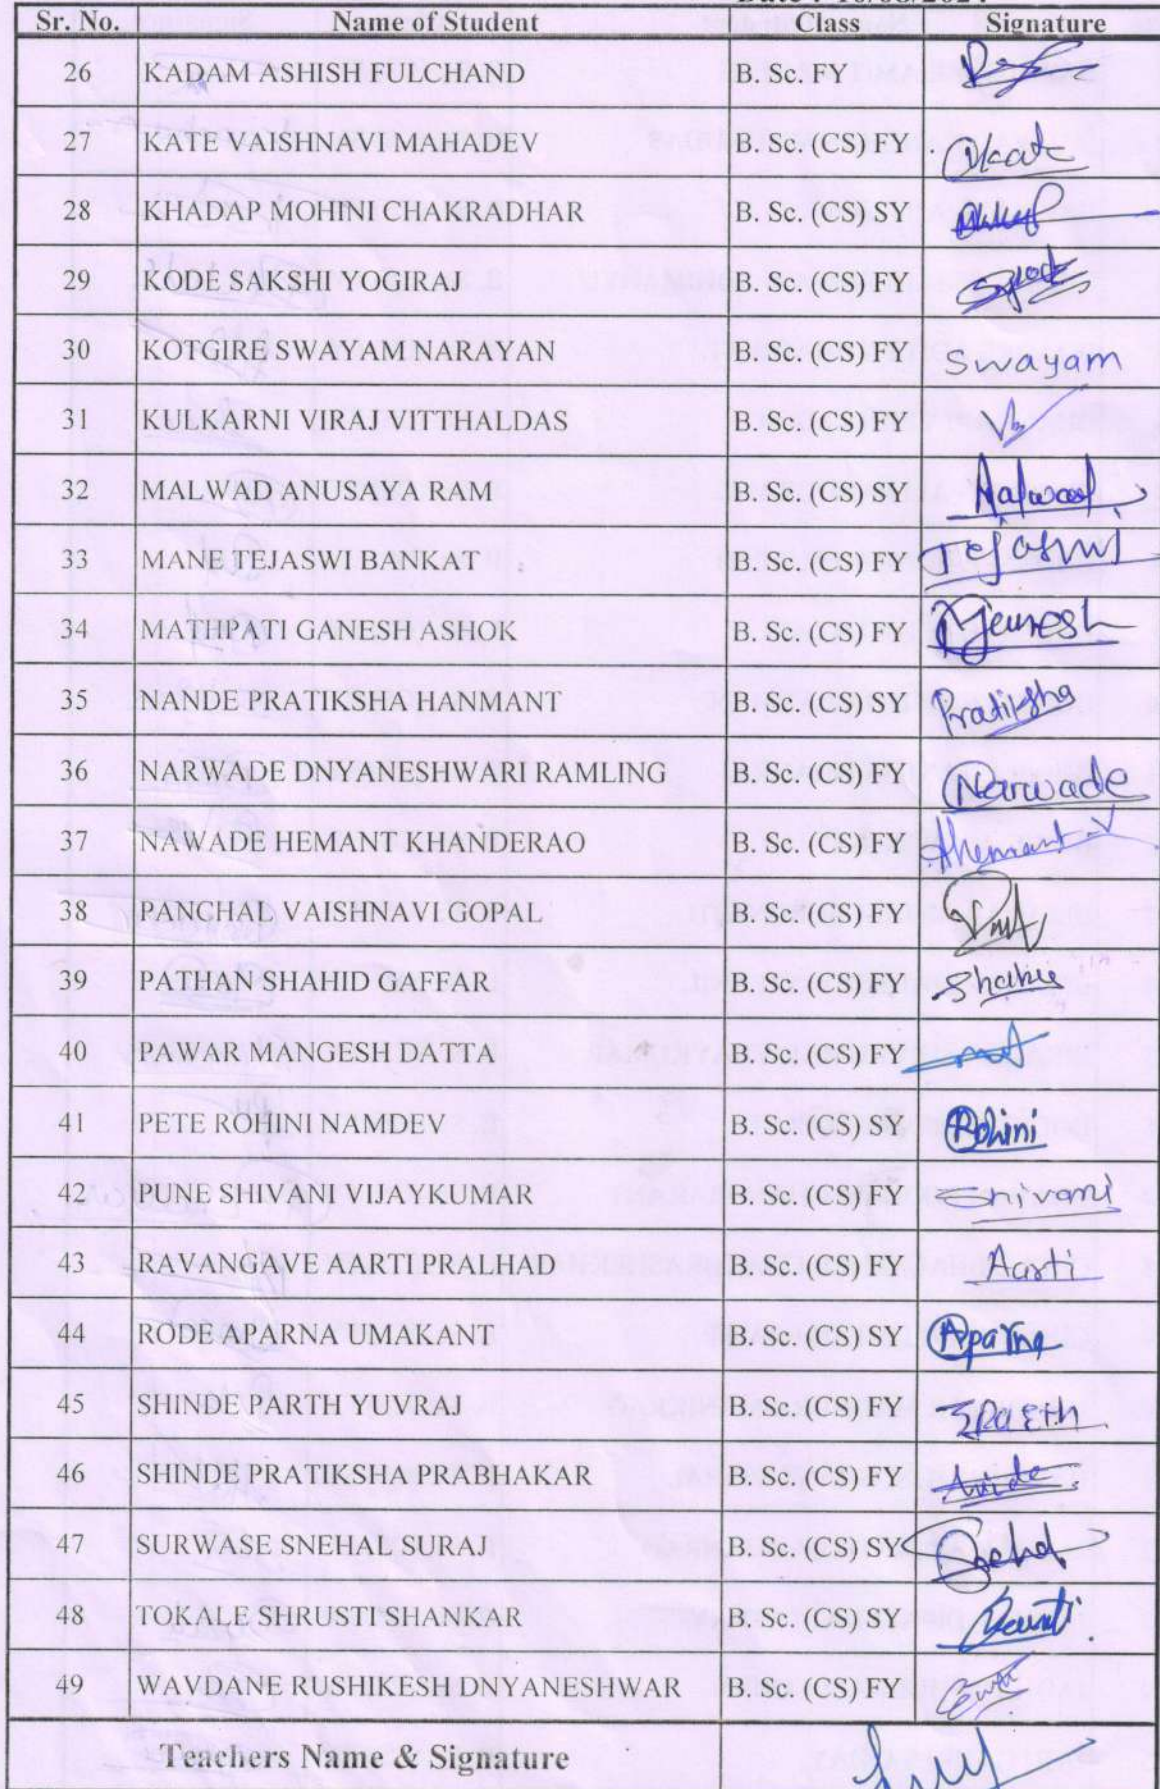 Sr. No. Name of Student Class Signature
26 KADAM ASHISH FULCHAND B. Sc. FY
27 KATE VAISHNAVI MAHADEV B. Sc. (CS) FY VKate
28 KHADAP MOHINI CHAKRADHAR B. Sc. (CS) SY
29 KODE SAKSHI YOGIRAJ B. Sc. (CS) FY
30 KOTGIRE SWAYAM NARAYAN B. Sc. (CS) FY Swayam
31 KULKARNI VIRAJ VITTHALDAS B. Sc. (CS) FY
32 MALWAD ANUSAYA RAM B. Sc. (CS) SY
33 MANE TEJASWI BANKAT B. Sc. (CS) FY Tejaswi
34 MATHPATI GANESH ASHOK B. Sc. (CS) FY
35 NANDE PRATIKSHA HANMANT B. Sc. (CS) SY Pratiksha
36 NARWADE DNYANESHWARI RAMLING B. Sc. (CS) FY Narwade
37 NAWADE HEMANT KHANDERAO B. Sc. (CS) FY
38 PANCHAL VAISHNAVI GOPAL B. Sc. (CS) FY
39 PATHAN SHAHID GAFFAR B. Sc. (CS) FY
40 PAWAR MANGESH DATTA B. Sc. (CS) FY
41 PETE ROHINI NAMDEV B. Sc. (CS) SY Rohini
42 PUNE SHIVANI VIJAYKUMAR B. Sc. (CS) FY
43 RAVANGAVE AARTI PRALHAD B. Sc. (CS) FY Aarti
44 RODE APARNA UMAKANT B. Sc. (CS) SY Aparna
45 SHINDE PARTH YUVRAJ B. Sc. (CS) FY
46 SHINDE PRATIKSHA PRABHAKAR B. Sc. (CS) FY
47 SURWASE SNEHAL SURAJ B. Sc. (CS) SY
48 TOKALE SHRUSTI SHANKAR B. Sc. (CS) SY
49 WAVDANE RUSHIKESH DNYANESHWAR B. Sc. (CS) FY
Teachers Name & Signature